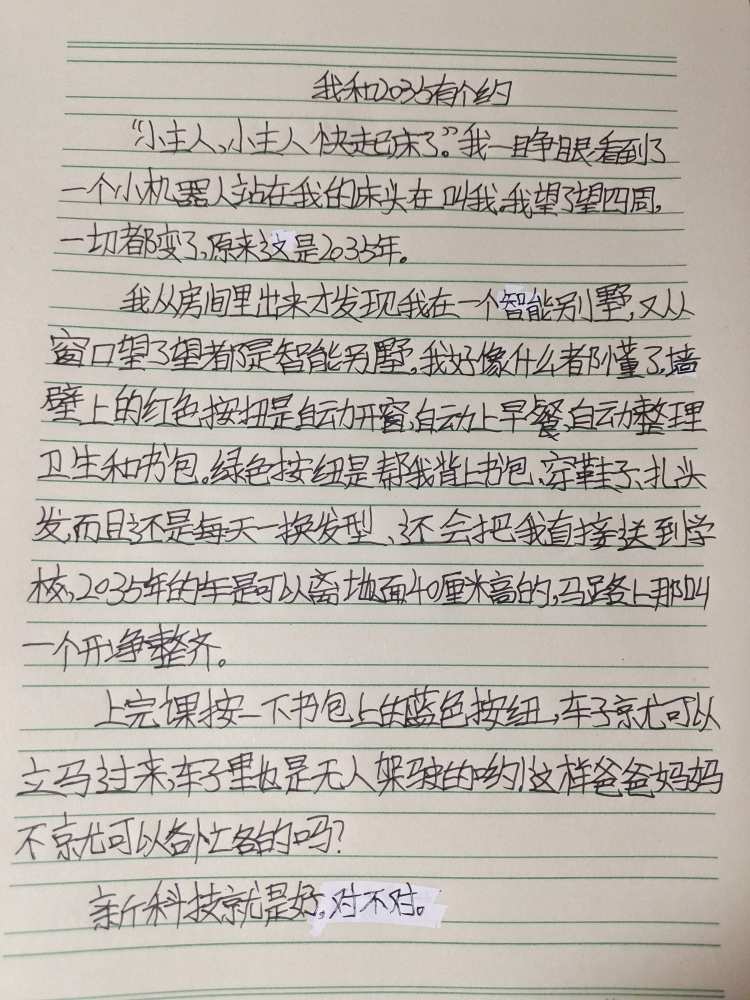 我和2035有个约
“小主人、小主人快起床了。”我一睁眼看到了
一个小机器人站在我的床头在叫我。我望了望四周,
一切都变了,原来这是2035年。
我从房间里出来才发现我在一个智能别墅,又从
窗口望了望都是智能别墅。我好像什么都懂了,墙
壁上的红色按扭是自动开窗,自动上早餐,自动整理
卫生和书包。绿色按纽是帮我背上书包、穿鞋子、扎头
发,而且还是每天一换发型、还会把我直接送到学
校,2035年的车是可以离地面40厘米高的,马路上那叫
一个干净整齐。
上完课按一下书包上的蓝色按纽,车子就可以
立马过来,车子里也是无人驾驶的哟!这样爸爸妈妈
不就可以各忙各的吗?
新科技就是好,对不对。